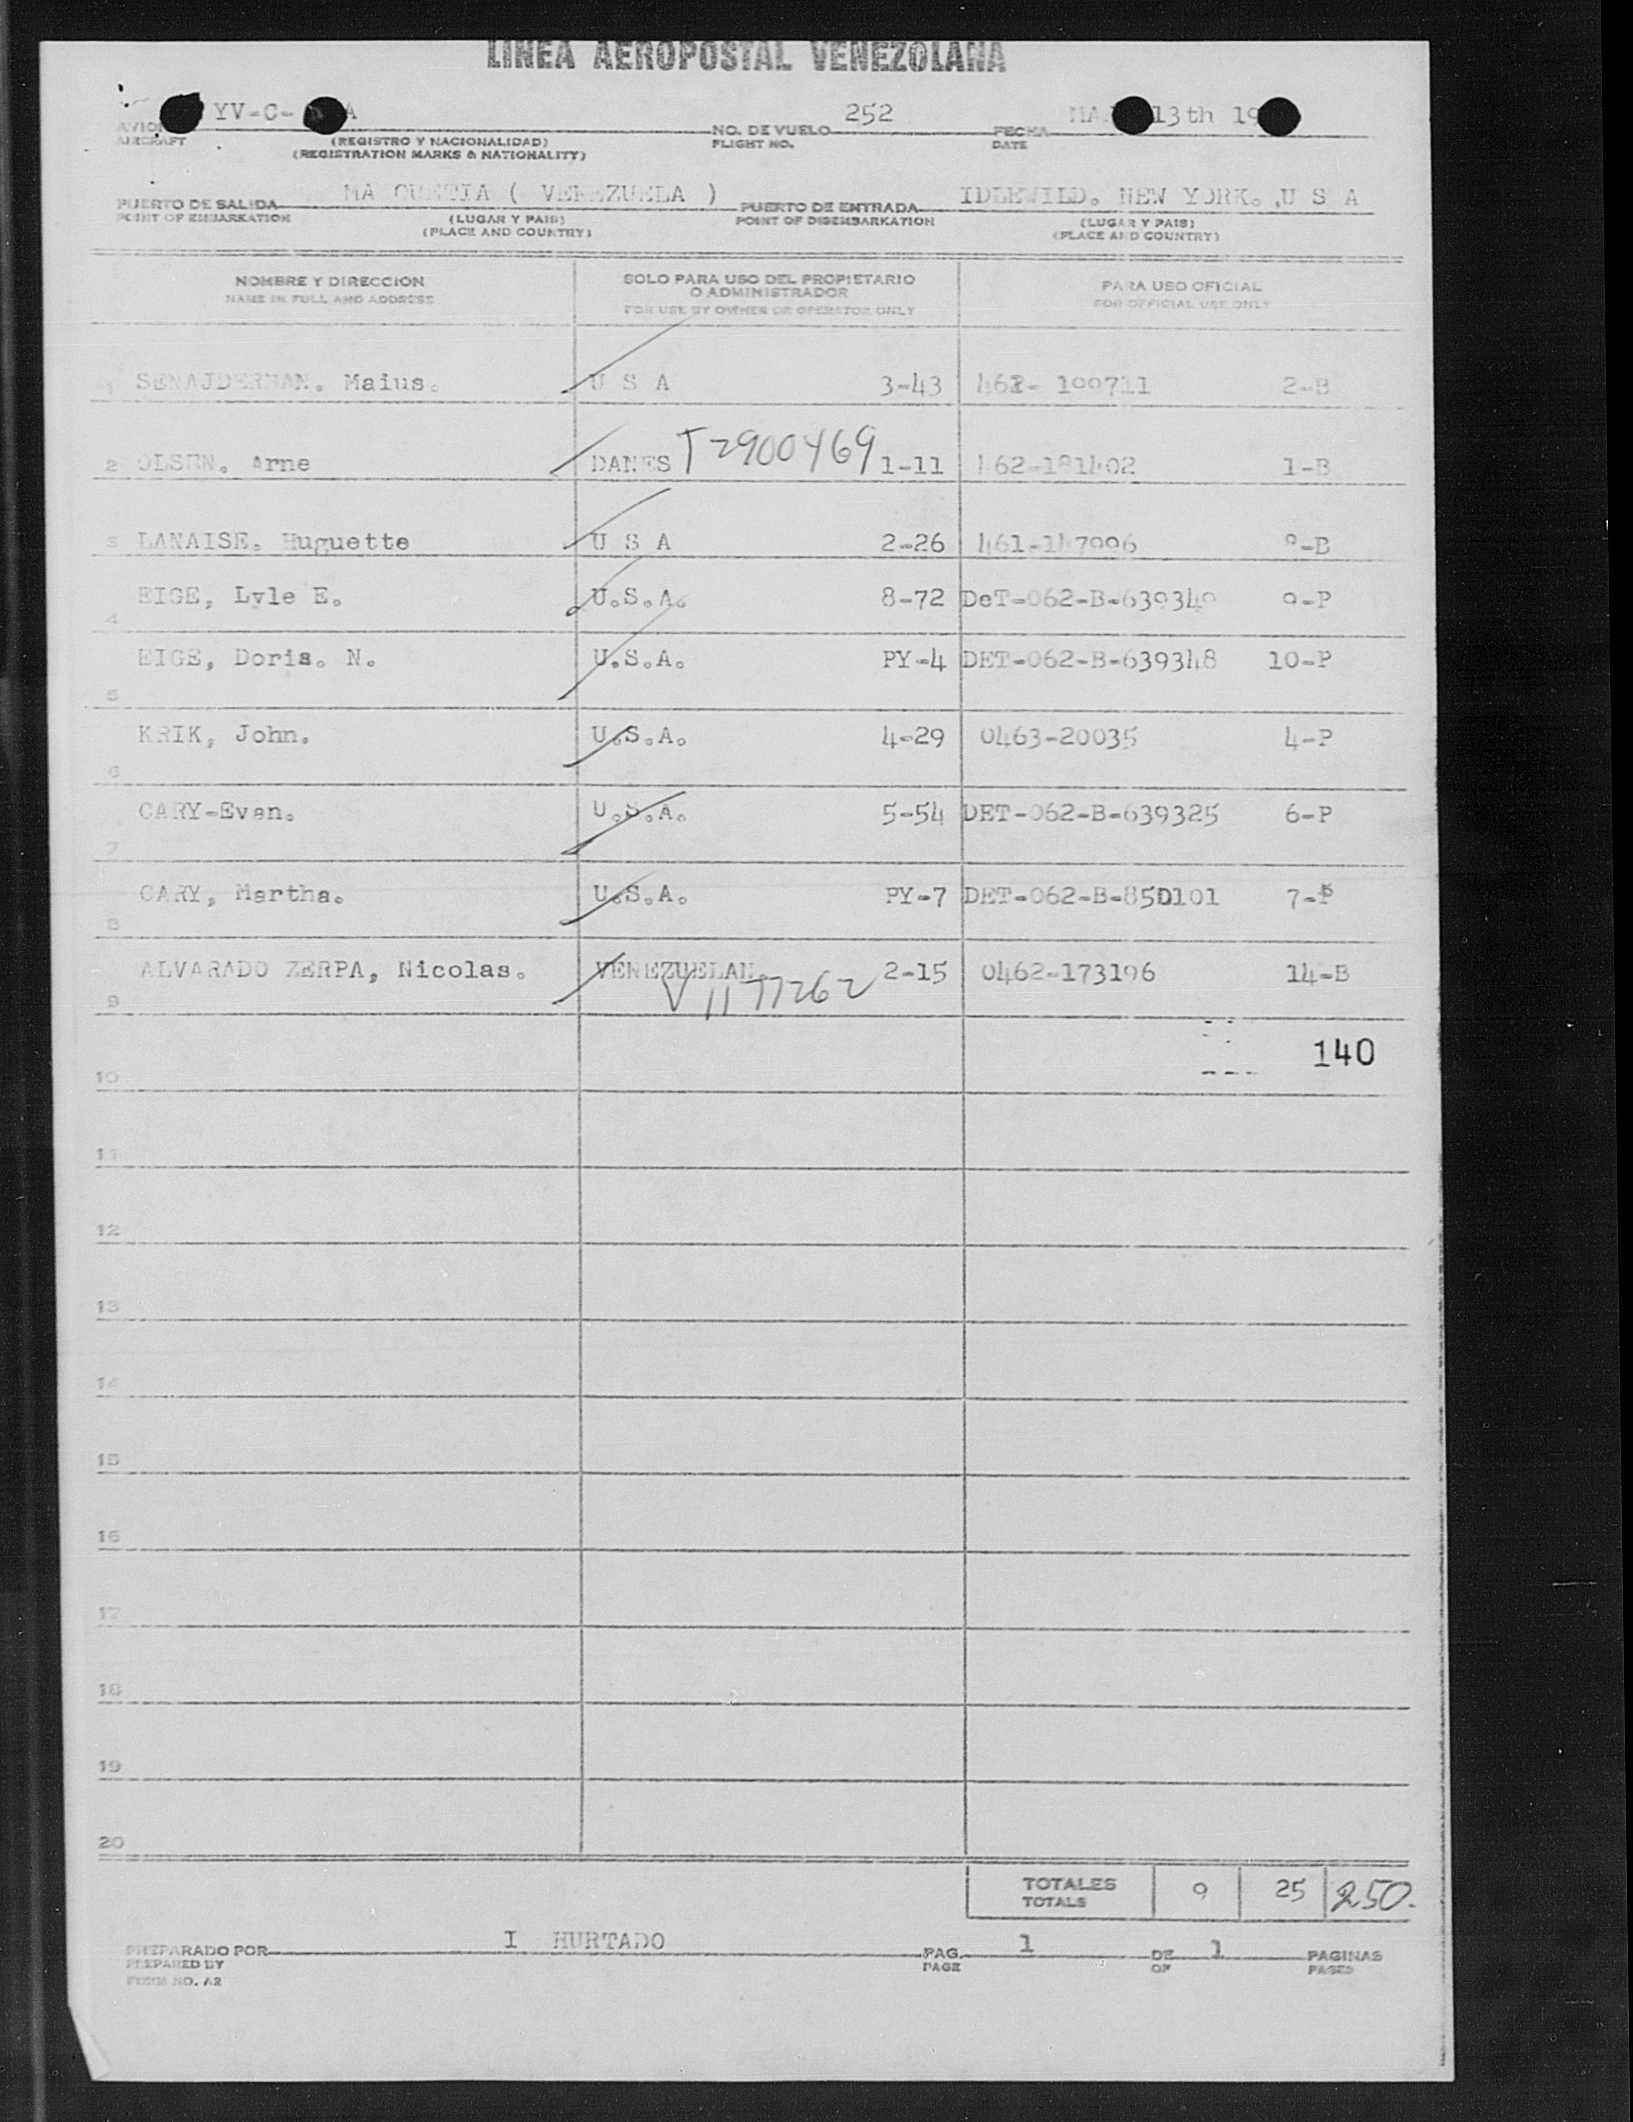 LINEA AEROPOSTAL VENEZOLANA
YV-C- A 252 MA 13th 19
AVION NO. DE VUELO FECHA
AIRCRAFT (REGISTRO Y NACIONALIDAD) FLIGHT NO. DATE
(REGISTRATION MARKS & NATIONALITY)
MA QUETIA ( VENEZUELA ) IDLEWILD. NEW YORK. ,U S A
PUERTO DE SALIDA PUERTO DE ENTRADA
POINT OF EMBARKATION (LUGAR Y PAIS) POINT OF DISEMBARKATION (LUGAR Y PAIS)
(PLACE AND COUNTRY) (PLACE AND COUNTRY)
NOMBRE Y DIRECCION SOLO PARA USO DEL PROPIETARIO PARA USO OFICIAL
NAME IN FULL AND ADDRESS O ADMINISTRADOR FOR OFFICIAL USE ONLY
FOR USE BY OWNER OR OPERATOR ONLY
1 SENAJDERMAN. Maius. U S A 3-43 462- 190711 2-B
2 OLSEN. Arne DANES T2900469 1-11 462-181402 1-B
3 LANAISE. Huguette U S A 2-26 461-147996 8-B
4 EIGE, Lyle E. U.S.A. 8-72 DeT-062-B-639349 9-P
5 EIGE, Doris. N. U.S.A. PY-4 DET-062-B-639348 10-P
6 KRIK, John. U.S.A. 4-29 0463-20035 4-P
7 CARY-Even. U.S.A. 5-54 DET-062-B-639325 6-P
8 CARY, Martha. U.S.A. PY-7 DET-062-B-850101 7-P
9 ALVARADO ZERPA, Nicolas. VENEZUELAN. 2-15 0462-173196 14-B
V 1177262
140
10
11
12
13
14
15
16
17
18
19
20
TOTALES 9 25 250.
TOTALS
I HURTADO
PREPARADO POR PAG. 1 DE 1 PAGINAS
PREPARED BY PAGE OF PAGES
FORM NO. A2